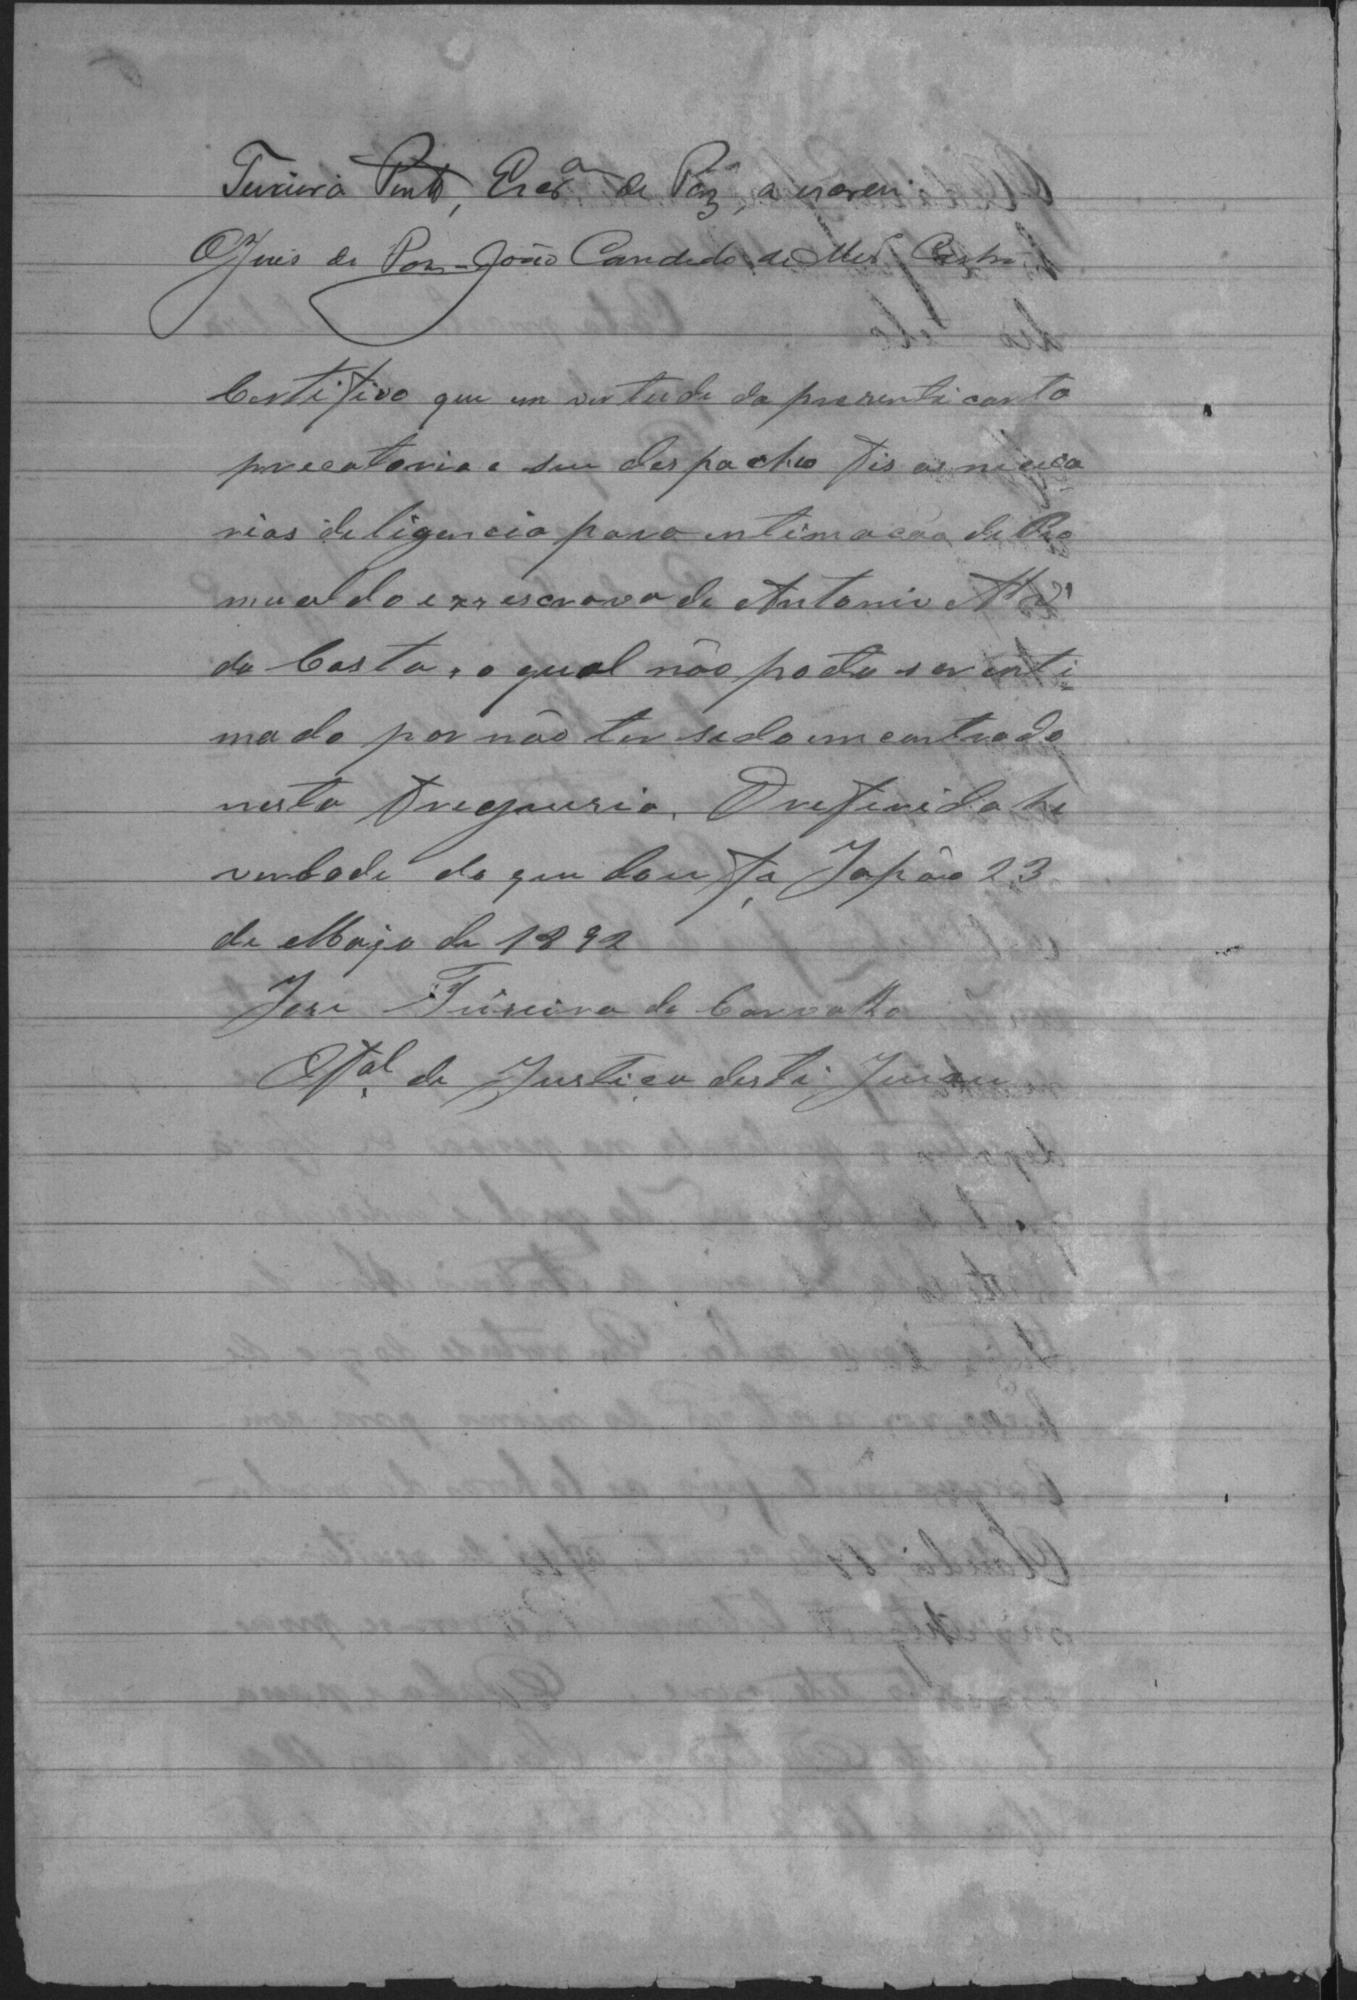 Teixeira Pinto, Escr.am de Paz, a escrevi.
O Juis de Paz João Candido de Mel Castro
Certifico que em vertude da prezente carta
precatoria e seu despacho fis as neseça
rias deligencia para intimação de Ro
mualdo exx escravo de Antonio Alz'
da Costa, o qual não pode ser inti
mado por não ter sido emcontrado
nesta Freguesia. O referido he
verdade do que dou fé, Japão 23
de Majo de 1892
Jose Teixeira de Carvalho
Offal. de Justiça deste Juizo